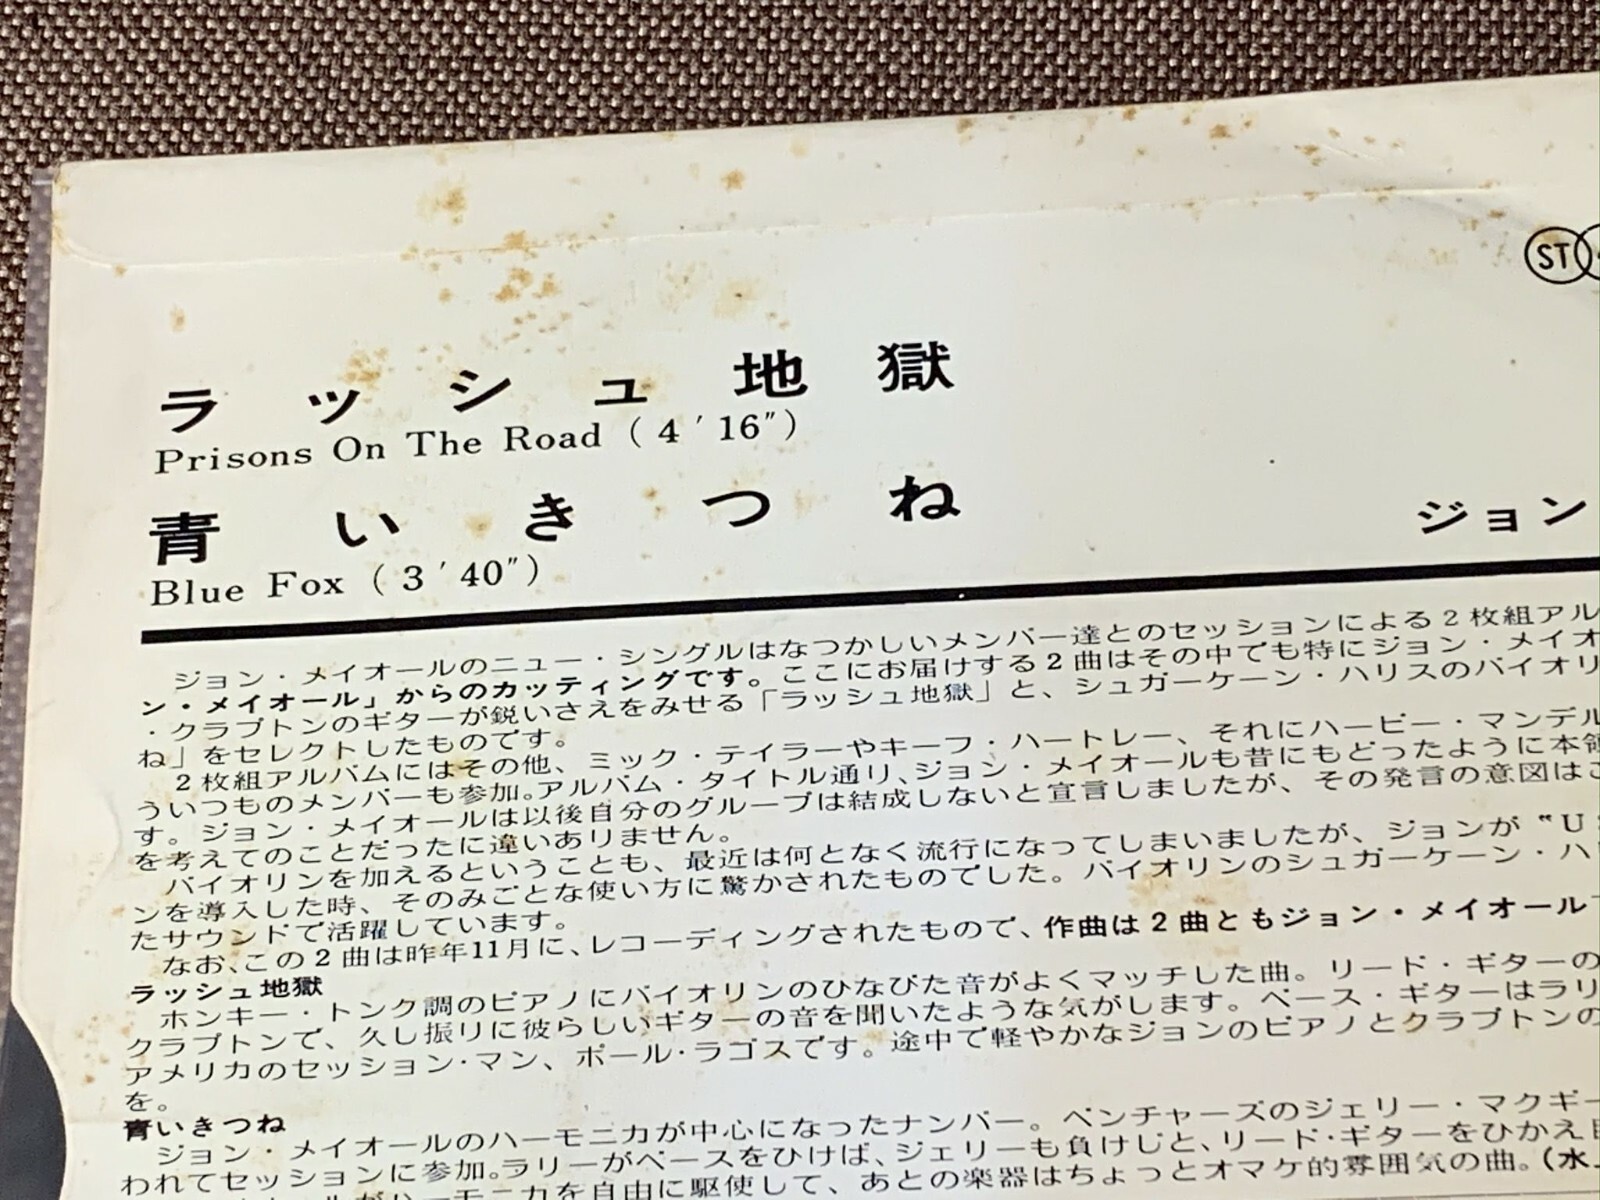 ST
ラッシュ地獄
Prisons On The Road (4′16″)
青いきつね
Blue Fox (3′40″)
ジョン
ジョン・メイオールのニュー・シングルはなつかしいメンバー達とのセッションによる2枚組アル
ン・メイオール」からのカッティングです。ここにお届けする2曲はその中でも特にジョン・メイオ
・クラプトンのギターが鋭いさえをみせる「ラッシュ地獄」と、シュガーケーン・ハリスのバイオリ
ね」をセレクトしたものです。
2枚組アルバムにはその他、ミック・テイラーやキーフ・ハートレー、それにハーピー・マンデル
ういつものメンバーも参加。アルバム・タイトル通り、ジョン・メイオールも昔にもどったように本領
す。ジョン・メイオールは以後自分のグループは結成しないと宣言しましたが、その発言の意図はこ
を考えてのことだったに違いありません。
バイオリンを加えるということも、最近は何となく流行になってしまいましたが、ジョンが“U
ンを導入した時、そのみごとな使い方に驚かされたものでした。バイオリンのシュガーケーン・ハ
たサウンドで活躍しています。
なお、この2曲は昨年11月に、レコーディングされたもので、作曲は2曲ともジョン・メイオール
ラッシュ地獄
ホンキー・トンク調のピアノにバイオリンのひなびた音がよくマッチした曲。リード・ギターの
クラプトンで、久し振りに彼らしいギターの音を聞いたような気がします。ベース・ギターはラリ
アメリカのセッション・マン、ポール・ラゴスです。途中で軽やかなジョンのピアノとクラプトンの
を。
青いきつね
ジョン・メイオールのハーモニカが中心になったナンバー。ベンチャーズのジェリー・マクギー
われてセッションに参加。ラリーがベースをひけば、ジェリーも負けじと、リード・ギターをひかえ目
ハーモニカを自由に駆使して、あとの楽器はちょっとオマケ的雰囲気の曲。(水